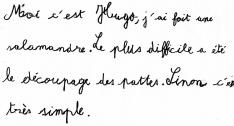 Méoi c'est Hugo, j'ai fait une
salamandre. Le plus difficile a été
le découpage des pattes. Sinon c'est
très simple.